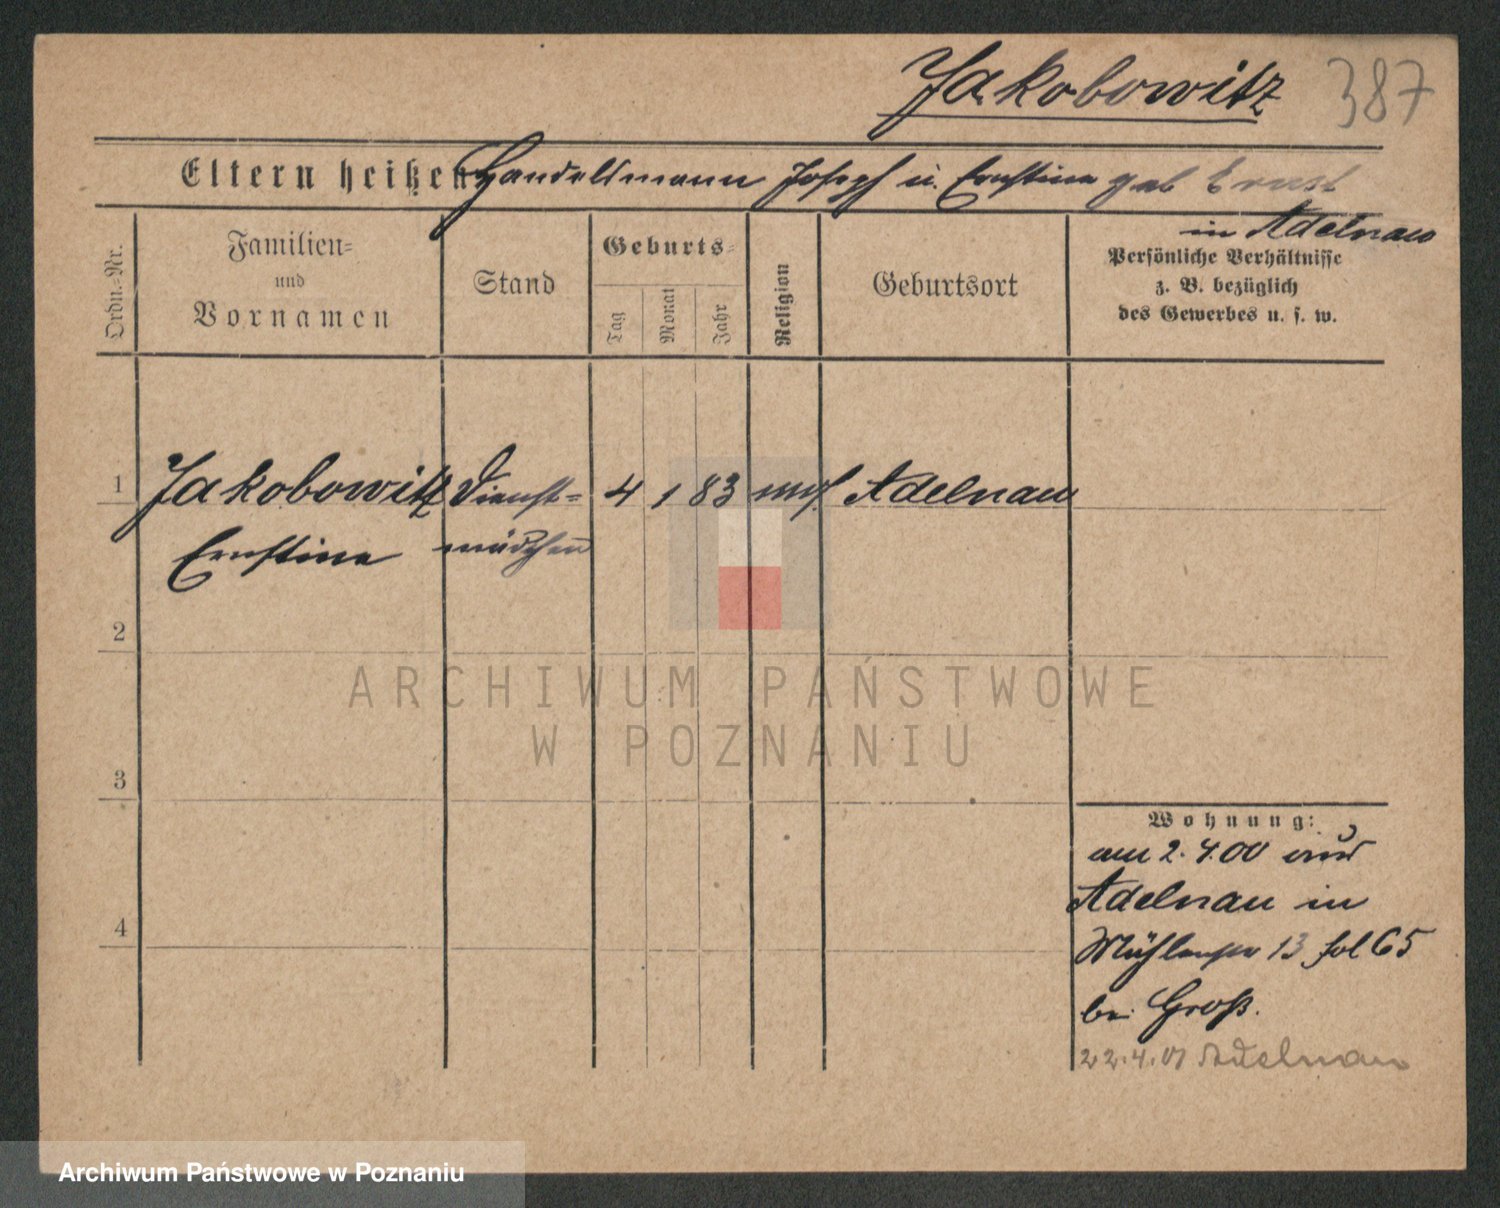 Jakobowitz 387
Eltern heißen Handelsmann Joseph u. Ernstine geb Ernst
in Adelnau
Ordn.-Nr.
Familien-
und
Vornamen
Stand
Geburts-
Tag
Monat
Jahr
Religion
Geburtsort
Persönliche Verhältnisse
z. B. bezüglich
des Gewerbes u. s. w.
1 Jakobowitz Dienst- 4 1 83 mos. Adelnau
Ernstine mädchen
2
3
4
Wohnung:
am 2.4.00 aus
Adelnau in
Mühlenstr 13 bei Groß.
22.4.01 Adelnau
ARCHIWUM PAŃSTWOWE
W POZNANIU
Archiwum Państwowe w Poznaniu